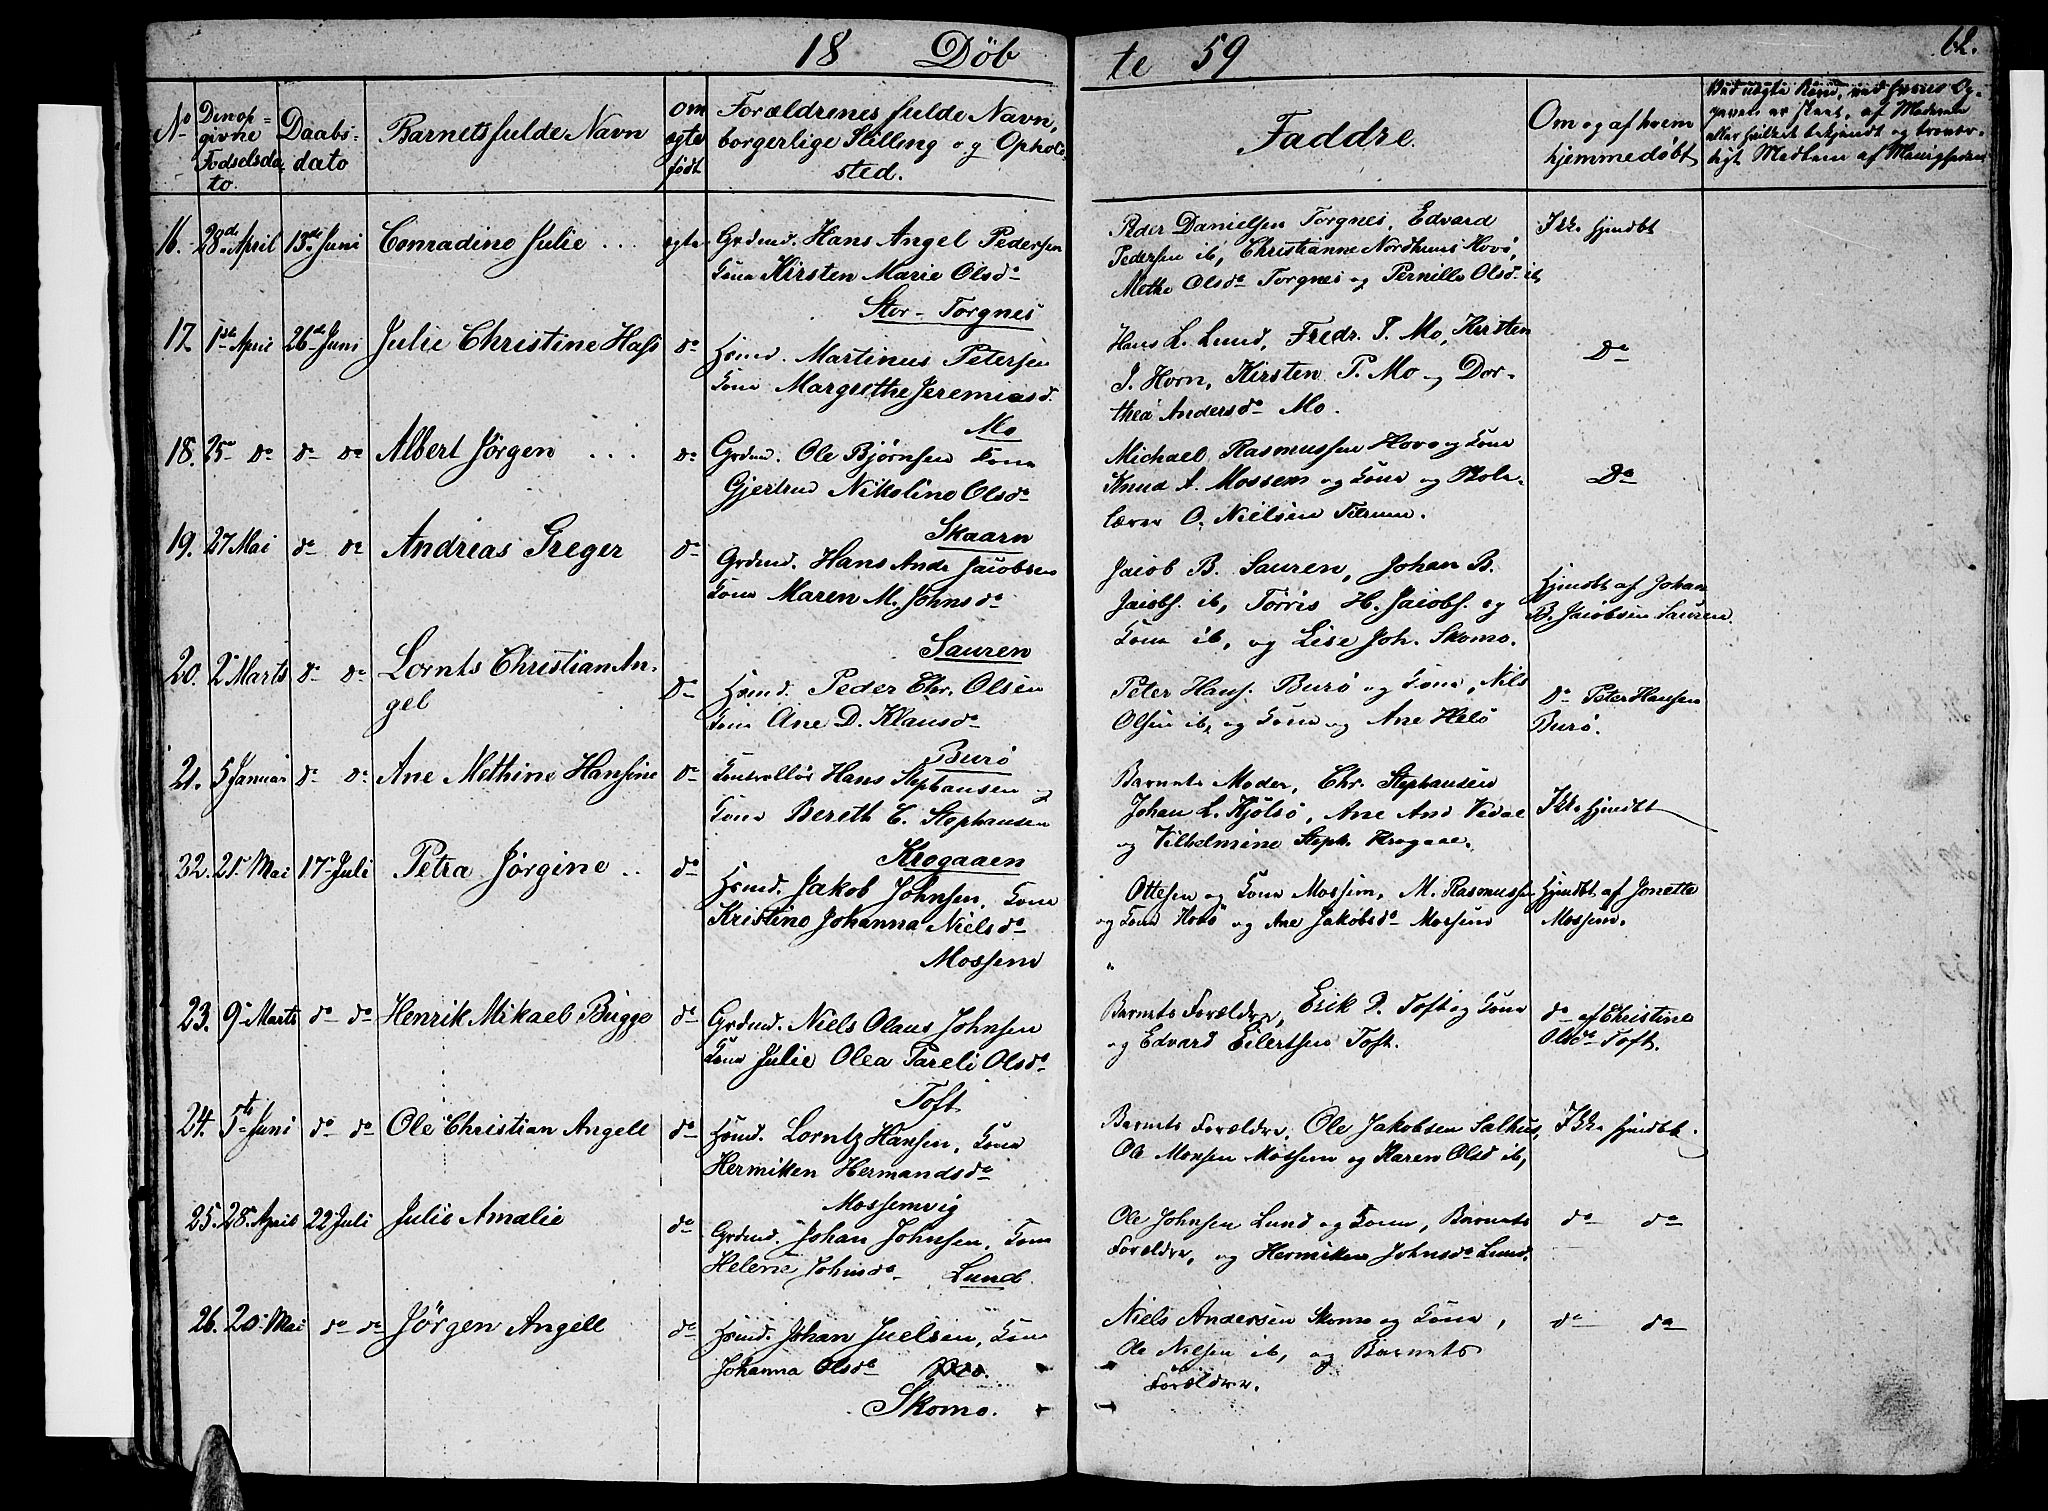 18 Döb
te 59
62.
No
Den op-
givne
Fødselsda-
to.
Daabs-
dato
Barnets fulde Navn
om
ægte
født
Forældrenes fulde Navn,
borgerlige Stilling og Ophold-
sted.
Faddre.
Om og af hvem
hjemmedøbt
16. 28de April 13de Juni Conradine Julie . . . ægte Grdmd. Hans Angel Pedersen
Kone Kirsten Marie Olsda
Stor-Torgnes
Peder Danielsen Torgnes, Edvard
Pedersen ib, Christianne Nordhuus Hovø,
Methe Olsda Torgnes og Pernille Olsd. ib,
Ikke hjmdbt
17. 1ste April 26de Juni Julie Christine Hass do Hsmd. Martinus Petersen
Kone Margrethe Jeremiasd.
Mo
Hans L. Lund, Fredr. P. Mo, Kirsten
J. Horn, Kirsten P. Mo og Dor-
thea Andersda Mo.
Do
18. 25de do do do Albert Jørgen . . . do Grdmd. Ole Bjørnsen Kone
Gjertrud Nikoline Olsda
Skaarn
Michael Rasmussen Hovø og Kone
Knud A. Mossem og Kone og Skole-
lærer O. Nielsen Tilrum.
Do
19. 27 Mai do do Andreas Greger do Grdmd. Hans Andr. Jacobsen
Kone Maren M. Johnsda
Sauren
Jacob B. Sauren, Johan B.
Jacobs. ib, Tørris H. Jacobs. og
Kone ib, og Lise Joh. Skomo.
Hjmdbt af Johan
B. Jacobsen Sauren.
20. 2 Marts do do Lornts Christian An-
gel
do Hsmd. Peder Chr. Olsen
Kone Ane D. Klausda
Burø
Peter Hans. Burø og Kone, Nils
Olsen ib, og Kone og Ane Helø
Do Peter Hansen
Burø.
21. 5 Januar do do Ane Methine Hansine do Controllør Hans Stephansen og
Kone Bereth C. Stephansen
Krogaaen
Barnets Moder, Chr. Stephansen
Johan L. Kjølsø, Ane And Vedal
og Vilhelmine Steph. Krogaae.
Ikke hjmdbt
22. 21de Mai 17de Juli Petra Jørgine . . do Hsmd. Jakob Johnsen, Kone
Kristine Johanna Nielsda
Mossem
Ottesen og Kone Mossem, M. Rasmussen
og Kone Hovø og Ane Jakobsda Mossem
Hjmdbt af Jonette
Mossem.
23. 9de Marts do do Henrik Mikael Bugge do Grdmd. Niels Olaus Johnsen
Kone Julie Olea Pareli Olsda
Toft
Barnets Forældre, Erik P. Toft og Kone
og Edvard Eilertsen Toft.
do af Christine
Olsda Toft.
24. 5te Juni do do Ole Christian Angell do Hsmd. Lorntz Hansen, Kone
Hermiken Hermandsda
Mossemvig
Barnets Forældre, Ole Jakobsen Salhus,
Ole Monsen Mossem og Karen Olsd ib,
Ikke hjmdbt
25. 28de April 22de Juli Julie Amalie do Grdmd. Johan Johnsen, Kone
Helene Johnsda Lund
Ole Johnsen Lund og Kone, Barnets
Forældre, og Hermiken Johnsda Lund.
do do
26. 20de Mai do do Jørgen Angell do Hsmd. Johan Juelsen, Kone
Johanna Olsda
Skomo.
Niels Andersen Skomo og Kone,
Ole Nilsen ib, og Barnets
Forældre.
do do